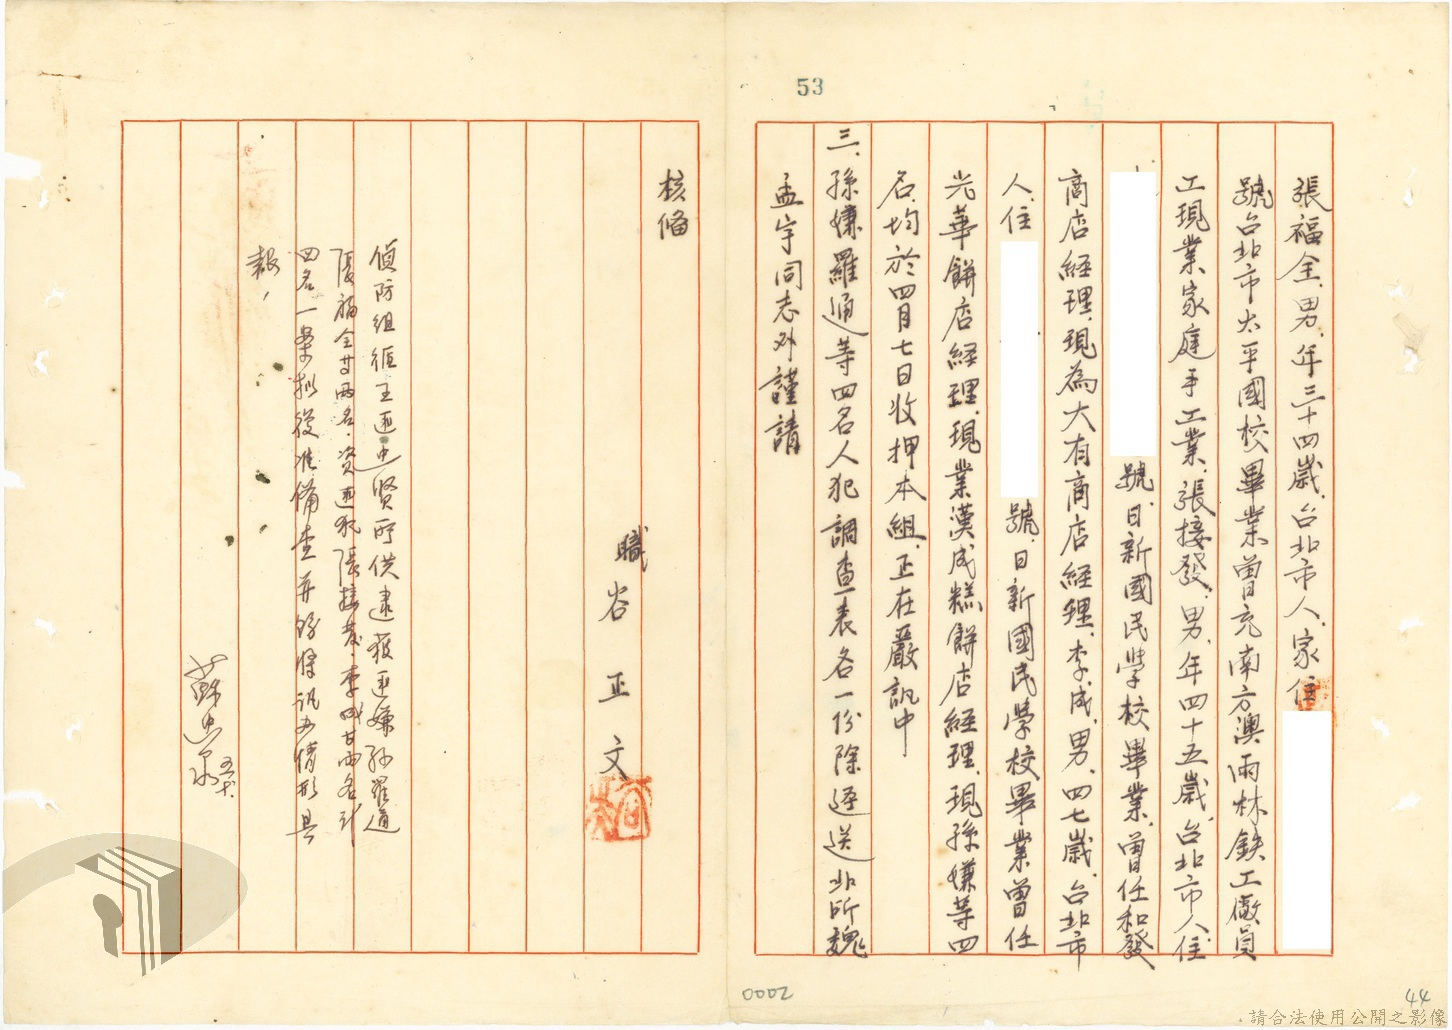 53
張福全、男、年三十四歲、台北市人、家住
號台北市太平國校畢業曾充南方澳雨林鉄工廠員
工現業家庭手工業、張接發、男、年四十五歲、台北市人住
號、日新國民學校畢業、曾任和發
商店經理、現為大有商店經理、李成、男、四七歲、台北市
人、住 號、日新國民學校畢業曾任
光華餅店經理、現業漢成糕餅店經理、現孫嫌等四
名、均於四月七日收押本組、正在嚴訊中
三、孫嫌羅通等四名人犯調查表各一份除逕送北所魏
孟宇同志外謹請
核備
職谷正文
偵防組據王匪忠賢所供逮獲匪嫌孫羅通
張福全等兩名、資匪犯張接發、李成等兩名計
四名一案擬復准備查并飭將訊办情形具
報,
蘇
0002
44
請合法使用公開之影像